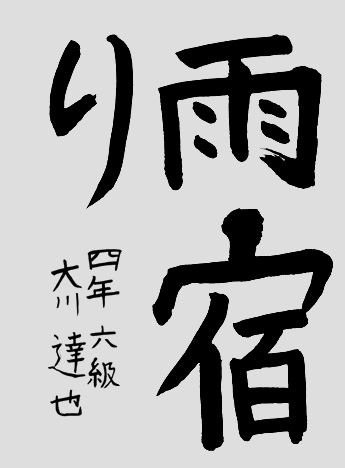 雨宿
り
四年 六級
大川 達也